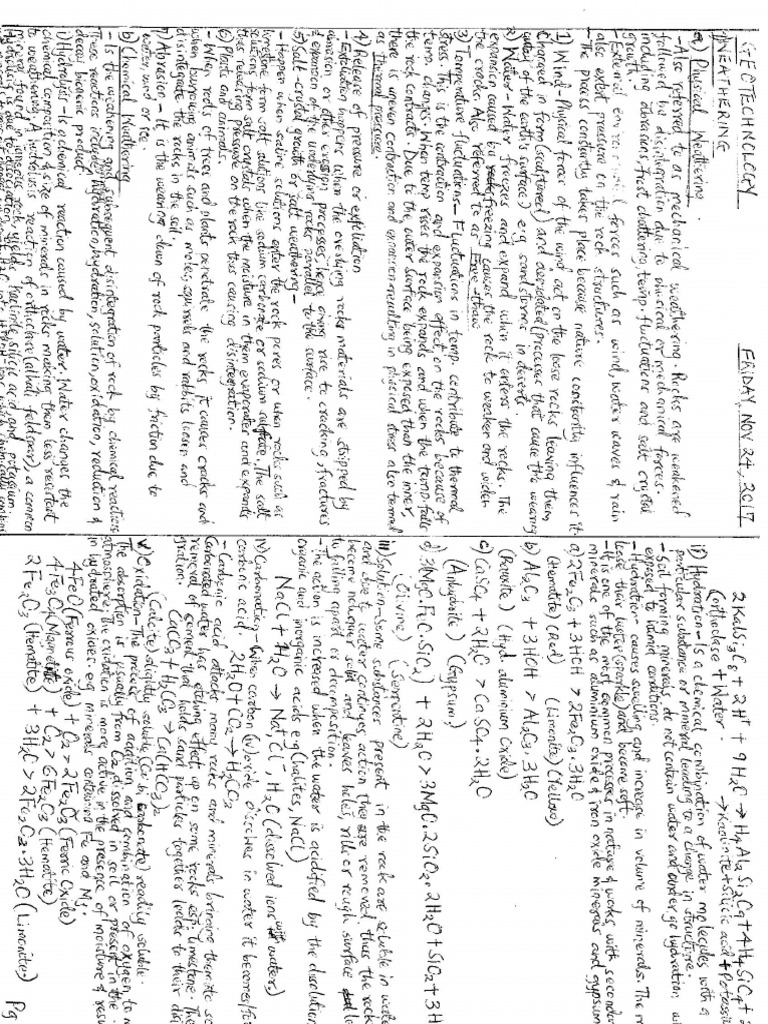 GEOTECHNOLOGY
FRIDAY, NOV 24, 2017
1) WEATHERING
a) Physical Weathering.
- Also referred to as mechanical weathering. Rocks are weakened
followed by disintegration due to physical or mechanical forces.
including abrasions, frost shattering, temp. fluctuations and salt crystal
growth.
- External environmental forces such as wind, water waves & rain
also exert pressure on the rock structures.
- The process constantly takes place because nature constantly influences it.
1) Wind - Physical forces of the wind act on the loose rocks leaving them
changed in form (sculptured) and corroded (processes that cause the wearing
of the earth's surface) e.g sandstorms in deserts
2) Water - Water freezes and expand when it enters the rocks. The
expansion caused by freezing causes the rock to weaken and widen
the cracks. Also referred to as Freeze-thaw
3) Temperature fluctuations - Fluctuations in temp. contribute to thermal
stress. This is the contraction and expansion effect on the rocks because of
temp. changes. When temp rises the rock expands and when the temp. falls
the rock contracts. Due to the outer surface being exposed than the inner,
there is uneven contraction and expansion resulting in physical stress also termed
as thermal pressure.
4) Release of pressure or exfoliation
- Exfoliation happens when the overlying rocks materials are stripped by
erosion or other processes, hence giving rise to cracking, fractures
& expansion of the underlying rocks parallel to the surface.
5) Salt-crystal growth or salt weathering -
- Happen when saline solutions enter the rock pores or when rocks such as
limestone form salt solutions like sodium carbonate or sodium sulfate. The salt
solutions form salt crystals when the moisture in them evaporates and expands
thus releasing pressure on the rock thus causing disintegration.
6) Plants and animals.
- When roots of trees and plants penetrate the rocks, it causes cracks and
when burrowing animals such as moles, squirrels and rabbits live in and
disintegrate the rocks in the soil.
7) Abrasion - It is the wearing down of rock particles by friction due to
water, wind or ice.
b) Chemical Weathering
- Is the weakening and subsequent disintegration of rock by chemical reactions
These reactions include hydration, hydration, solution, oxidation, reduction &
decay because product.
i) Hydrolysis - Is a chemical reaction caused by water. Water changes the
chemical composition & size of minerals in rocks making them less resistant
to weathering. A hydrolysis reaction of orthoclase (alkali feldspar), a common
mineral found in igneous rock yields kaolinite, silicic acid and potassium.
2KAlSi3O8 + 2H+ + 9H2O → H4Al2Si2O9 + 4H4SiO4 +
(orthoclase + Water → Kaolinite + Silicic acid + Potassium
ii) Hydration - Is a chemical combination of water molecules with a
particular substance or mineral leading to a change in structure.
- Soil forming minerals do not contain water and undergo hydration
exposed to humid conditions.
- Hydration causes swelling and increase in volume of minerals. The
lose their luster (sparkle) and become soft.
- It is one of the most common processes in nature & works with secondary
minerals such as aluminium oxide & iron oxide minerals and gypsum
a) 2Fe2O3 + 3HOH > 2Fe2O3.3H2O
(Hematite) (Red) (Limonite) (Yellow)
b) Al2O3 + 3HOH > Al2O3.3H2O
(Bauxite) (Hyd. aluminium Oxide)
c) CaSO4 + 2H2O > CaSO4.2H2O
(Anhydrite) (Gypsum)
d) 3(MgO.FeO.SiO2) + 2H2O > 3MgO.2SiO2.2H2O + SiO2 + 3H
(Olivine) (Serpentine)
iii) Solution - Some substances present in the rock are soluble in water
and due to water continuous action they are removed, thus the rock
become no longer solid and leaves holes, rills or rough surface
to falling apart or decomposition.
- The action is increased when the water is acidified by the dissolution
organic and inorganic acids e.g (halites, NaCl)
NaCl + H2O → Na+Cl-, H2O (dissolved ions with water)
iv) Carbonation - When carbon (iv) oxide dissolves in water it becomes/
carbonic acid 2H2O + CO2 → H2CO3
- Carbonic acid attacks many rocks and minerals bringing them to
Carbonated water has etching effect up on some rocks esp. limestone. The
removal of cement that holds sand particles together leads to their
gration. CaCO3 + H2CO3 → Ca(HCO3)2
(Calcite) slightly soluble (Ca bicarbonate) readily soluble.
v) Oxidation - The process of addition and combination of oxygen to
The absorption is usually from O2 dissolved in soil or present in the
atmosphere. The oxidation is more active in the presence of moisture &
in hydrated oxides. e.g minerals containing Fe and Mg.
4FeO (Ferrous oxide) + O2 > 2Fe2O3 (Ferric Oxide)
4Fe3O4 (Magnetite) + O2 > 6Fe2O3 (Hematite)
2Fe2O3 (Hematite) + 3H2O > 2Fe2O3.3H2O (Limonite)
Pg